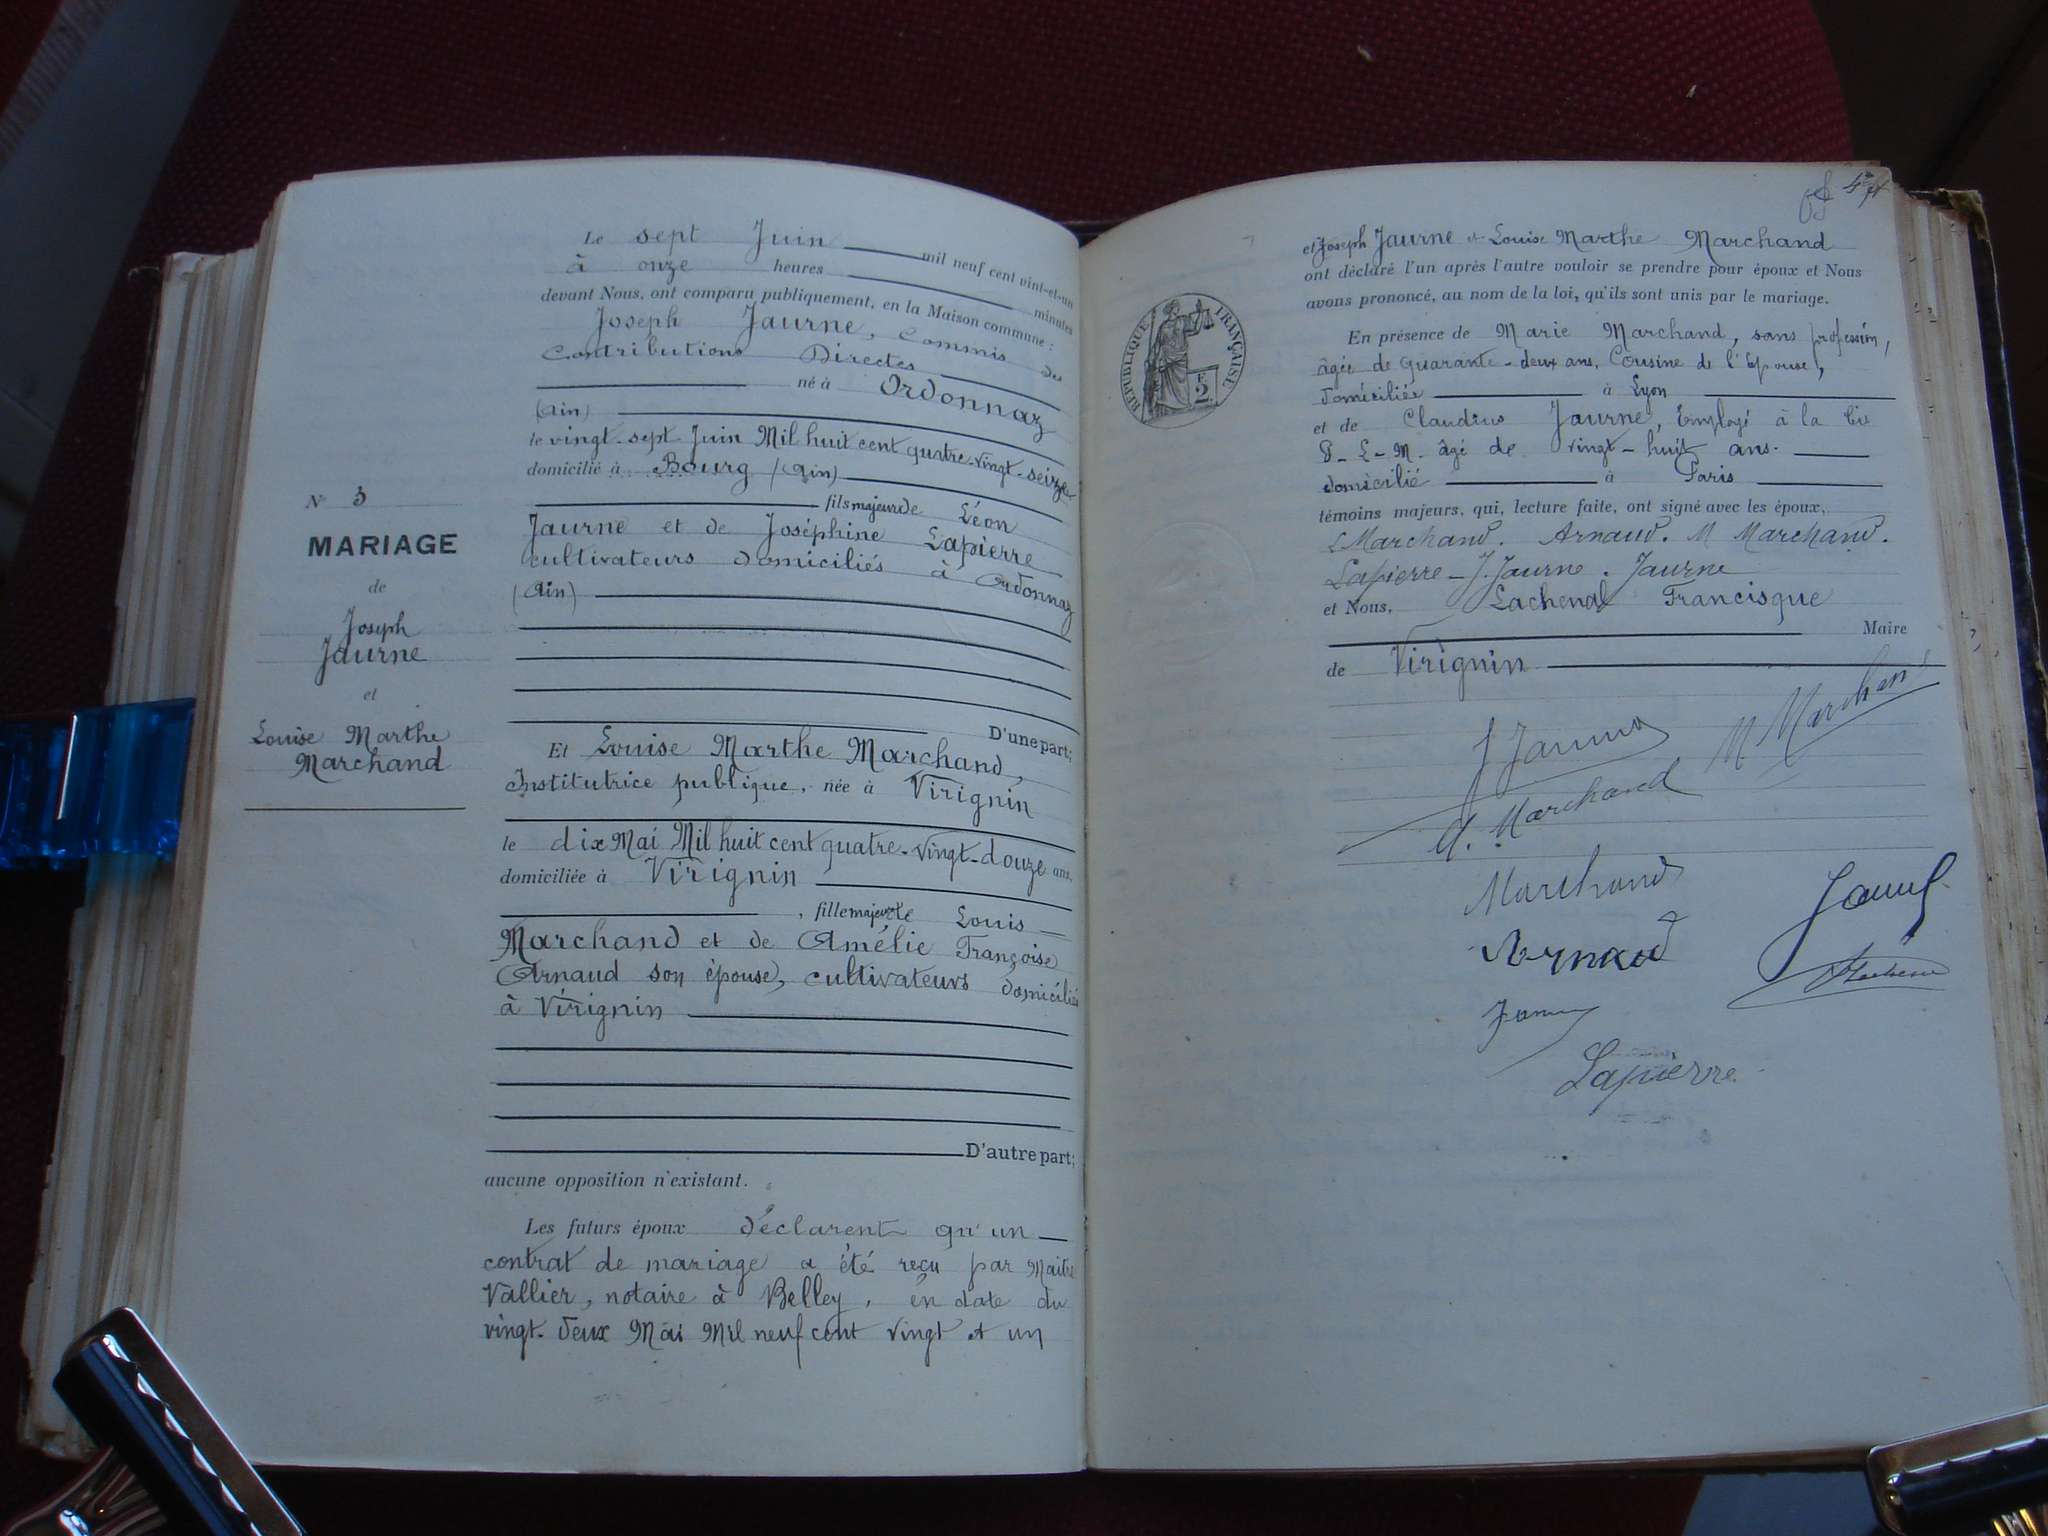 N° 3
MARIAGE
de
Joseph
Jaurne
et
Louise Marthe
Marchand
Le sept Juin mil neuf cent vint-et-un
à onze heures minutes
devant Nous, ont comparu publiquement, en la Maison commune :
Joseph Jaurne, Commis des
Contributions Directes
né à Ordonnaz
(Ain)
le vingt-sept Juin Mil huit cent quatre-vingt-seize
domicilié à Bourg (Ain)
fils majeur de Léon
Jaurne et de Joséphine Lapierre
cultivateurs domiciliés à Ordonnaz
(Ain)
D'une part;
Et Louise Marthe Marchand,
Institutrice publique, née à Virignin
le dix Mai Mil huit cent quatre-vingt-douze ans,
domiciliée à Virignin
, fille majeure de Louis
Marchand et de Amélie Françoise
Arnaud son épouse, cultivateurs domiciliés
à Virignin
D'autre part;
aucune opposition n'existant.
Les futurs époux déclarent qu'un
contrat de mariage a été reçu par Maître
Vallier, notaire à Belley, en date du
vingt-deux Mai Mil neuf cent vingt et un
RÉPUBLIQUE FRANÇAISE
2 F
et Joseph Jaurne et Louise Marthe Marchand
ont déclaré l'un après l'autre vouloir se prendre pour époux et Nous
avons prononcé, au nom de la loi, qu'ils sont unis par le mariage.
En présence de Marie Marchand, sans profession,
âgée de Quarante-deux ans, Cousine de l'Epouse,
domiciliée à Lyon
et de Claudius Jaurne, Employé à la Cie
P-L-M. âgé de vingt-huit ans.
domicilié à Paris
témoins majeurs, qui, lecture faite, ont signé avec les époux,
L Marchand. Arnaud. M Marchand.
Lapierre - J. Jaurne. Jaurne
et Nous, Lachenal Francisque
Maire
de Virignin
J Jaurne
M Marchand
Marchand
Marchand
Jaurne
Arnaud
Jaurne
Lapierre